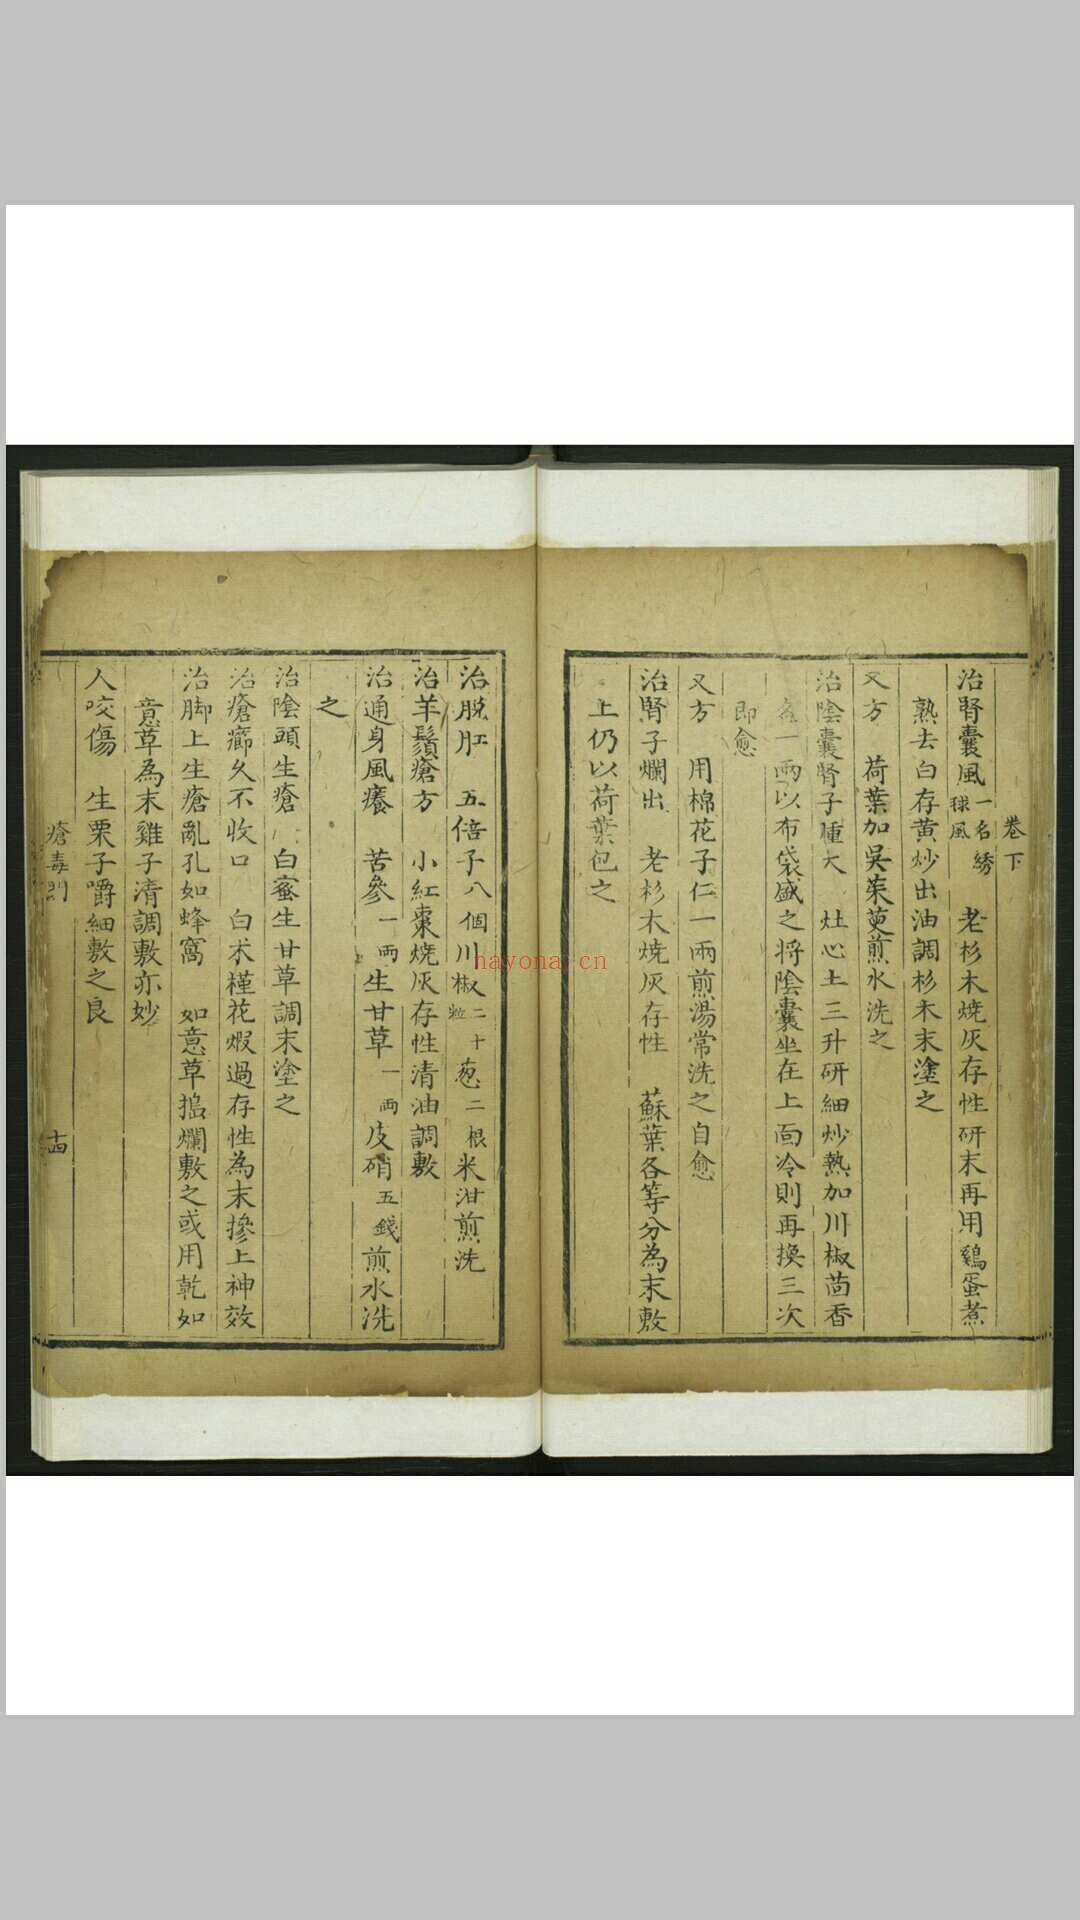 卷下
治腎囊風一名綉球風 老杉木燒灰存性研末再用鷄蛋煮
熟去白存黃炒出油調杉木末塗之
又方 荷葉加吳茱萸煎水洗之
治陰囊腎子腫大 灶心土三升研細炒熟加川椒茴香
一兩以布袋盛之將陰囊坐在上面冷則再換三次
即愈
又方 用棉花子仁一兩煎湯常洗之自愈
治腎子爛出 老杉木燒灰存性 蘇葉各等分為末敷
上仍以荷葉包之
治脫肛 五倍子八個川椒二十粒葱二根米泔煎洗
治羊鬚瘡方 小紅棗燒灰存性清油調敷
治通身風癢 苦參一兩生甘草一兩皮硝五錢煎水洗
之
治陰頭生瘡 白蜜生甘草調末塗之
治瘡癤久不收口 白木槿花煅過存性為末摻上神效
治脚上生瘡亂孔如蜂窩 如意草搗爛敷之或用乾如
意草為末雞子清調敷亦妙
人咬傷 生栗子嚼細敷之良
瘡毒門
十四
hayona.cn